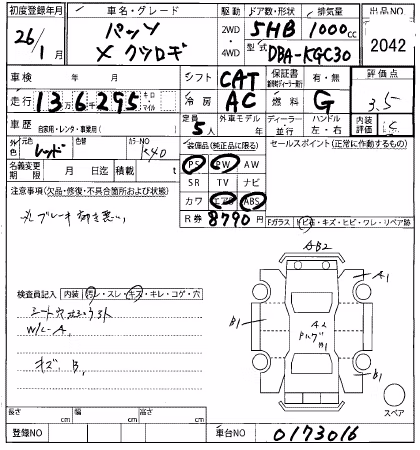 初度登録年月 車名・グレード 駆動 ドア数・形状 排気量 出品NO
26/1月 パッソ 2WD 5HB 1000cc 2042
X クツロギ 4WD 型式 DBA-KGC30
車検 年 月 シフト CAT 保証書 有・無 評価点
走行 13万6千295 キロ・マイル 冷房 AC 燃料 G 3.5
車歴 自家用・レンタ・事業用( ) 定員 5人 外車モデル 年 ディーラー・並行 ハンドル 左・右 内装評価
外色 元色 レッド 色替 カラーNO R40 装備品(純正品に限る) セールスポイント(正常に作動するもの)
名義変更期限 月 日迄 積載 t PS PW AW
注意事項(欠品・修復・不具合箇所および状態) SR TV ナビ
リブレーキ 効き悪い カワ エアB ABS
R券 8790円 Fガラス
検査員記入 内装 汚レ・スレ・キズ・キレ・コゲ・穴
W/L-A
キズ B1
AB2
A1
B1
A2
B1
スペア
長さ cm 幅 cm 高さ cm
登録NO 車台NO 0173016